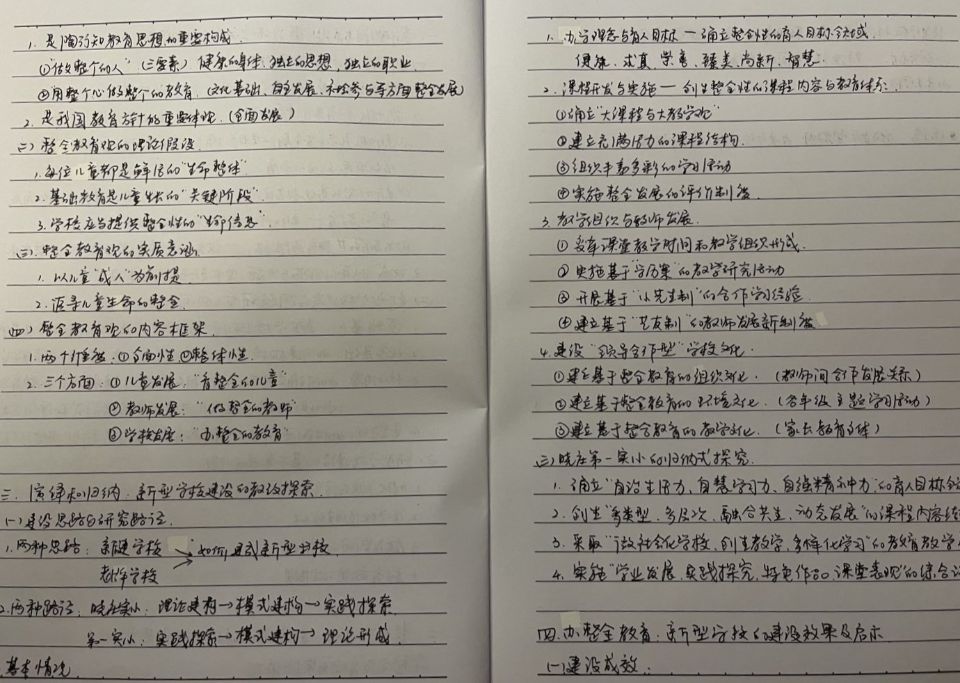 1. 是陶行知教育思想的重要构成
①"做整个的人"(三要素) 健康的身体,独立的思想,独立的职业
②用整个心做整个的教育.(文化基础、自主发展、社会参与等方面整全发展)
2. 是我国教育方针的重要体现.(全面发展)
(二) 整全教育观的理论假设
1. 每位儿童都是鲜活的"生命整体"
2. 基础教育是儿童生长的"关键阶段"
3. 学校应当提供整全性的"生命信息"
(三) 整全教育观的实质意涵
1. 以儿童"成人"为前提
2. 追寻儿童生命的整全
(四) 整全教育观的内容框架
1. 两个维度:①全面性 ②整体性
2. 三个方面:①儿童发展:"育整全的儿童"
②教师发展:"做整全的教师"
③学校发展:"办整全的教育"
三. 演绎和归纳:新型学校建设的教改探索
(一) 建设思路与研究路径
1. 两种思路:新建学校 "如何建设新型学校"
老牌学校
2. 两种路径. 晓庄实小:理论建构→模式建构→实践探索
第一实小:实践探索→模式建构→理论形成
基本情况
1. 办学理念与育人目标—确立整全性的育人目标
健康、求真、学惠、臻美、尚新、智慧
2. 课程开发与实施—创生整全性的课程内容与教育体系
①确立"大课程与大教学观"
②建立充满活力的课程结构
③组织丰富多彩的学习活动
④实施整全发展的评价制度
3. 教学组织与教师发展
①变革课堂教学时间和教学组织形式
②实施基于"学历案"的教学研究活动
③开展基于"小先生制"的合作学习经验
④建立基于"艺友制"的教师发展新制度
4. 建设"领导合作型"学校文化
①建立基于整全教育的组织文化.(教师间合作发展关系)
②建立基于整全教育的环境文化.(各年级主题学习活动)
③建立基于整全教育的教学文化.(家长教育主体)
(三) 晓庄第一实小的归纳式探究
1. 确立"自治生活力、自慧学习力、自强精神力"的育人目标
2. 创生"多类型、多层次、融合共生、动态发展"的课程内容
3. 采取"做社会化学校、创生教学、多样化学习"的教育教学
4. 实施"学业发展、实践探究、特色作品、课堂表现"的综合
四. 办整全教育:新型学校的建设效果及启示
(一) 建设成效